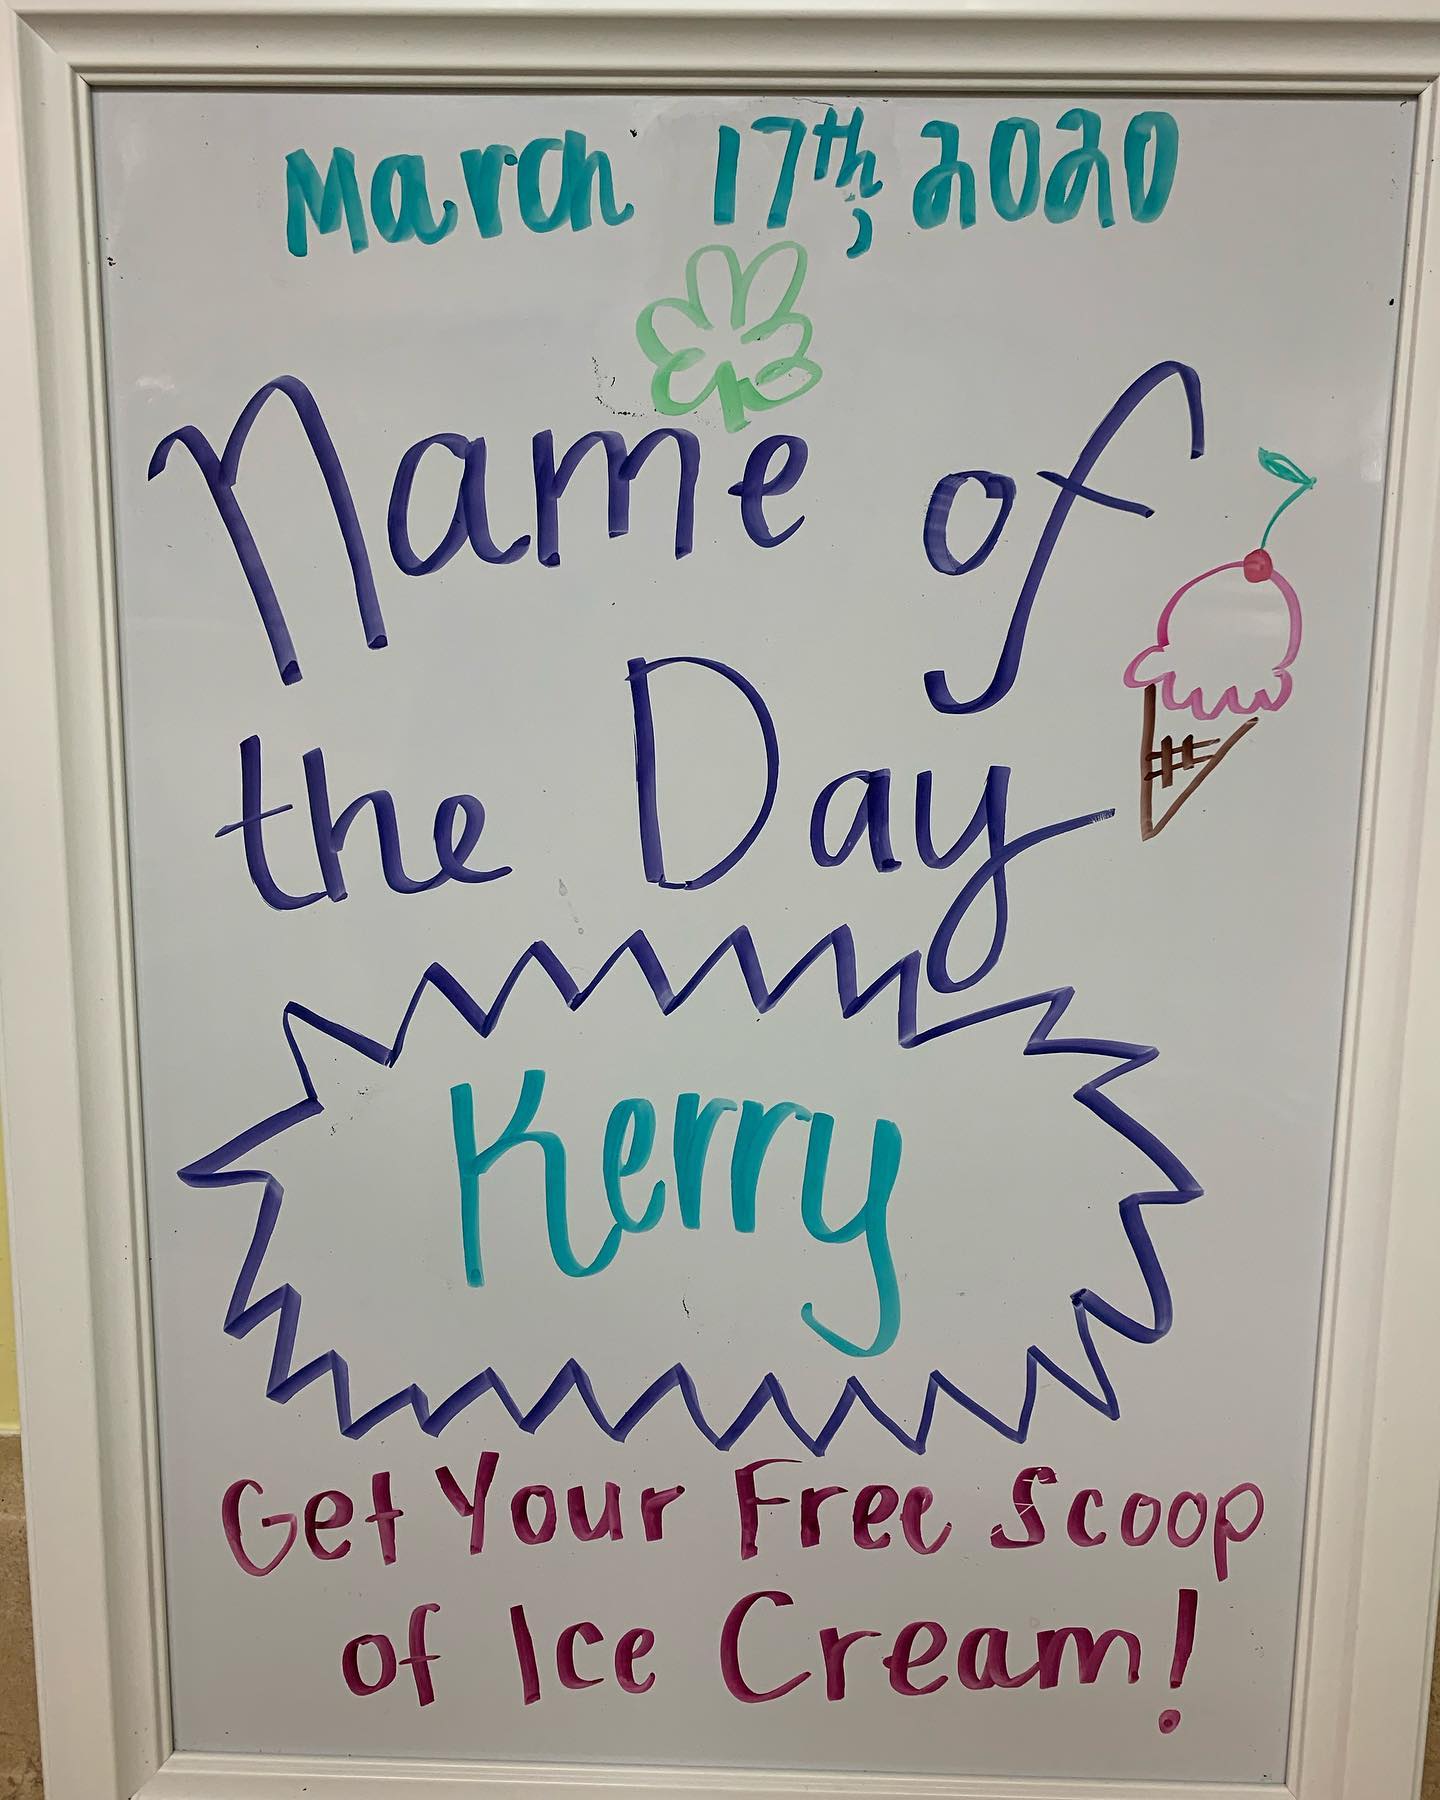 March 17th, 2020
Name of
the Day
Kerry
Get Your Free Scoop
of Ice Cream!